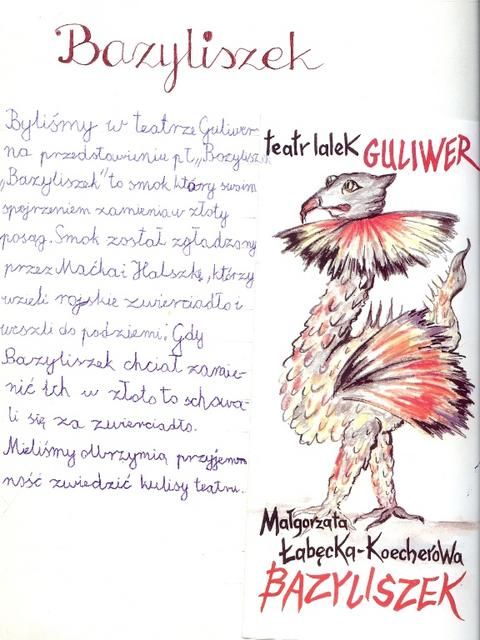 Bazyliszek
Byliśmy w teatrze Guliwer
na przedstawieniu pt. „Bazylisz
„Bazyliszek" to smok który swoim
spojrzeniem zamienia w złoty
posąg. Smok został zgładzony
przez Maćka i Halszkę, którzy
wzieli rajskie zwierciadło i
weszli do podziemi. Gdy
Bazyliszek chciał zamie-
nić ich w złoto to schowa-
li się za zwierciadło.
Mieliśmy olbrzymią przyjem
ność zwiedzić kulisy teatru.
teatr lalek GULIWER
Małgorzata
Łabęcka-Koecherowa
BAZYLISZEK